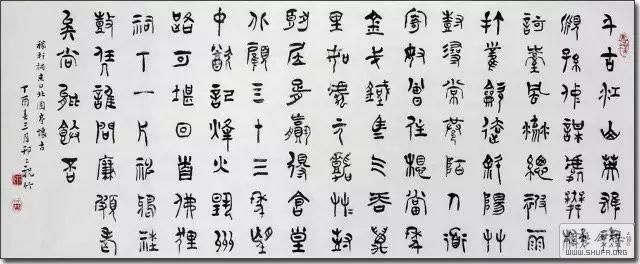 千古江山英雄無
覓孫仲謀處舞榭
歌臺風流總被雨
打風吹去斜陽草
樹尋常巷陌人道
寄奴曾住想當年
金戈鐵馬氣吞萬
里如虎元嘉草封
狼居胥贏得倉皇
北顧四十三年望
中猶記烽火揚州
路可堪回首佛狸
祠下一片神鴉社
鼓憑誰問廉頗老
矣尚能飯否
稼軒詞京口北固亭懷古
丁酉春三月邗上祝竹
WWW.SHUFA.ORG